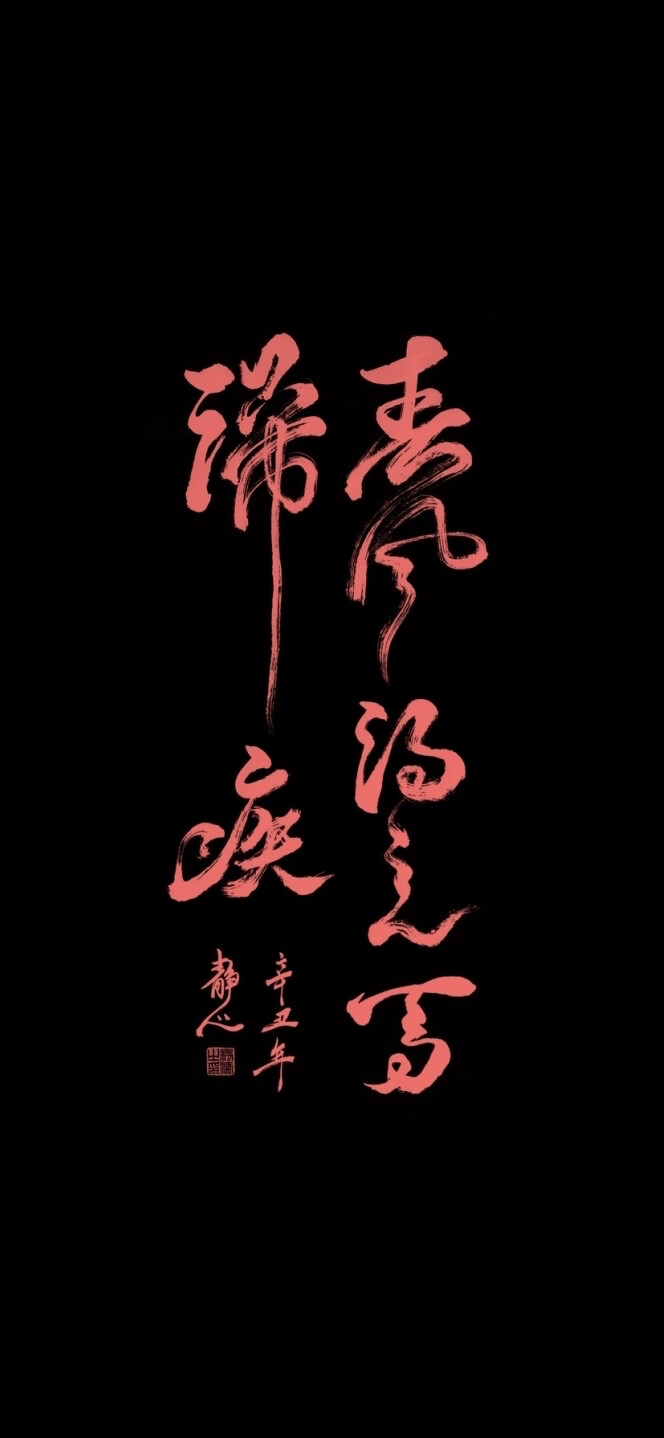 春风得意马
蹄疾
辛丑年
静心